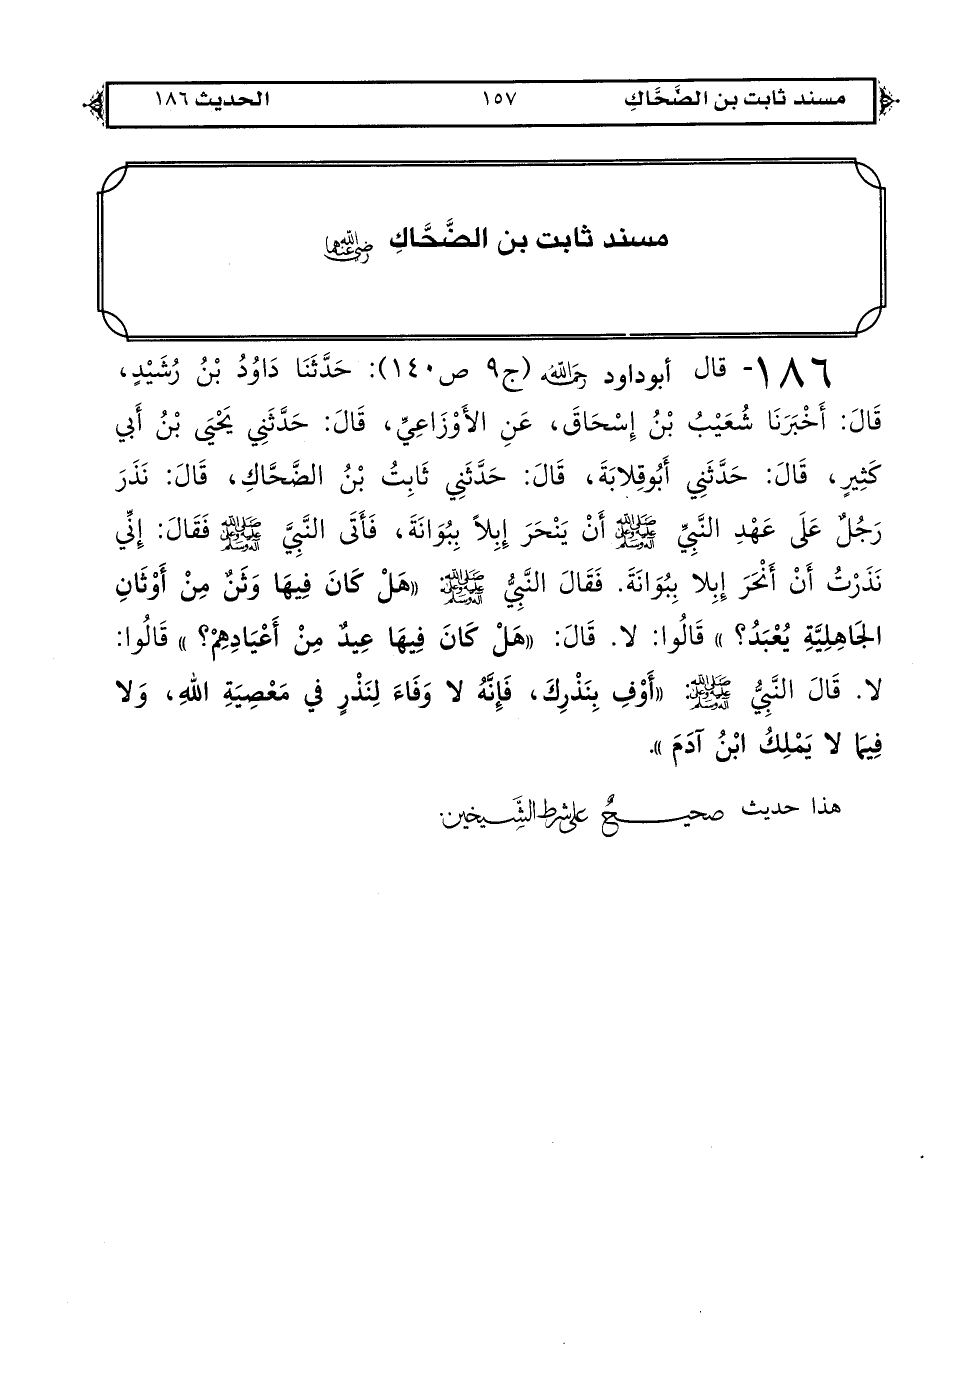 مسند ثابت بن الضَّحَّاكِ ١٥٧ الحديث ١٨٦
مسند ثابت بن الضَّحَّاكِ رضي الله عنهما
١٨٦- قال أبوداود رحمه الله (ج٩ ص١٤٠): حَدَّثَنَا دَاوُدُ بْنُ رُشَيْدٍ،
قَالَ: أَخْبَرَنَا شُعَيْبُ بْنُ إِسْحَاقَ، عَنِ الأَوْزَاعِيِّ، قَالَ: حَدَّثَنِي يَحْيَى بْنُ أَبِي
كَثِيرٍ، قَالَ: حَدَّثَنِي أَبُوقِلابَةَ، قَالَ: حَدَّثَنِي ثَابِتُ بْنُ الضَّحَّاكِ، قَالَ: نَذَرَ
رَجُلٌ عَلَى عَهْدِ النَّبِيِّ ﷺ أَنْ يَنْحَرَ إِبِلاً بِبُوَانَةَ، فَأَتَى النَّبِيَّ ﷺ فَقَالَ: إِنِّي
نَذَرْتُ أَنْ أَنْحَرَ إِبِلا بِبُوَانَةَ. فَقَالَ النَّبِيُّ ﷺ: «هَلْ كَانَ فِيهَا وَثَنٌ مِنْ أَوْثَانِ
الجَاهِلِيَّةِ يُعْبَدُ؟ » قَالُوا: لا. قَالَ: «هَلْ كَانَ فِيهَا عِيدٌ مِنْ أَعْيَادِهِمْ؟ » قَالُوا:
لا. قَالَ النَّبِيُّ ﷺ: «أَوْفِ بِنَذْرِكَ، فَإِنَّهُ لا وَفَاءَ لِنَذْرٍ فِي مَعْصِيَةِ اللهِ، وَلا
فِيمَا لا يَمْلِكُ ابْنُ آدَمَ ».
هذا حديث صحيحٌ على شرط الشَّيخين.